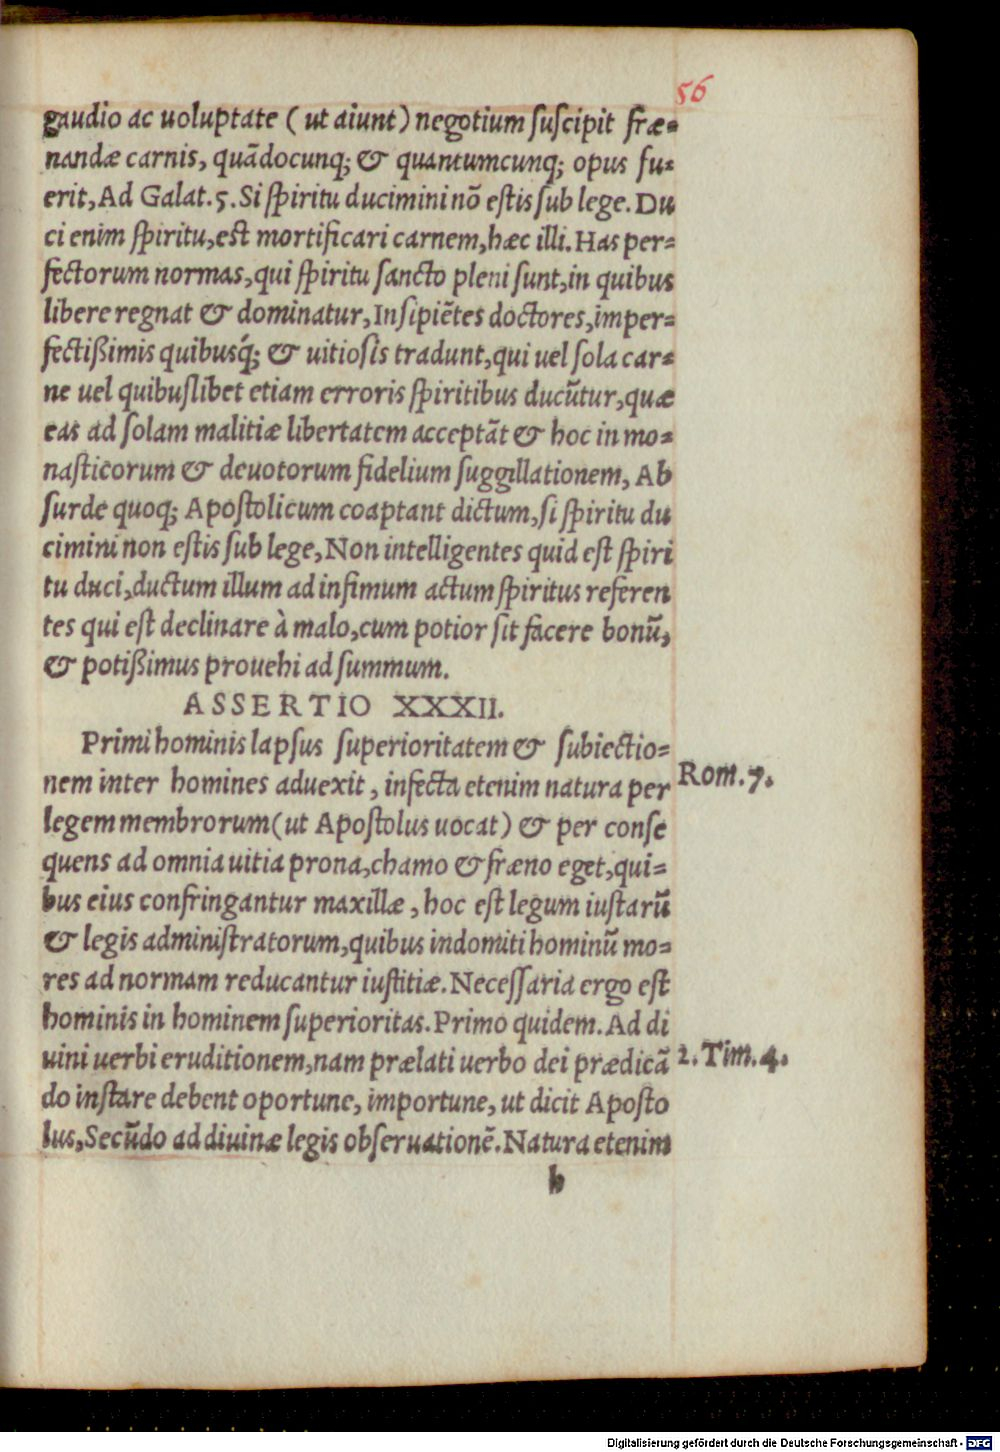 56
gaudio ac uoluptate ( ut aiunt) negotium ſuſcipit fræ=
nandæ carnis, quãdocunq; & quantumcunq; opus fu=
erit, Ad Galat. 5. Si ſpiritu ducimini nõ eſtis ſub lege. Du
ci enim ſpiritu, eſt mortificari carnem, hæc illi. Has per=
fectorum normas, qui ſpiritu ſancto pleni ſunt, in quibus
libere regnat & dominatur, Inſipiẽtes doctores, imper=
fectißimis quibusq́; & uitioſis tradunt, qui uel ſola car=
ne uel quibuſlibet etiam erroris ſpiritibus ducũtur, quæ
eas ad ſolam malitiæ libertatem acceptãt & hoc in mo=
naſticorum & deuotorum fidelium ſuggillationem, Ab
ſurde quoq; Apoſtolicum coaptant dictum, ſi ſpiritu du
cimini non eſtis ſub lege, Non intelligentes quid eſt ſpiri
tu duci, ductum illum ad infimum actum ſpiritus referen
tes qui eſt declinare à malo, cum potior ſit facere bonũ,
& potißimus prouehi ad ſummum.
ASSERTIO XXXII.
Primi hominis lapſus ſuperioritatem & ſubiectio=
nem inter homines aduexit, infecta etenim natura per
Rom. 7.
legem membrorum (ut Apoſtolus uocat) & per conſe
quens ad omnia uitia prona, chamo & fræno eget, qui=
bus eius confringantur maxillæ, hoc eſt legum iuſtarũ
& legis adminiſtratorum, quibus indomiti hominũ mo=
res ad normam reducantur iuſtitiæ. Neceſſaria ergo eſt
hominis in hominem ſuperioritas. Primo quidem. Ad di
uini uerbi eruditionem, nam prælati uerbo dei prædicã
2. Tim. 4.
do inſtare debent oportune, importune, ut dicit Apoſto
lus, Secũdo ad diuinæ legis obſeruationẽ. Natura etenim
h
Digitalisierung gefördert durch die Deutsche Forschungsgemeinschaft - DFG